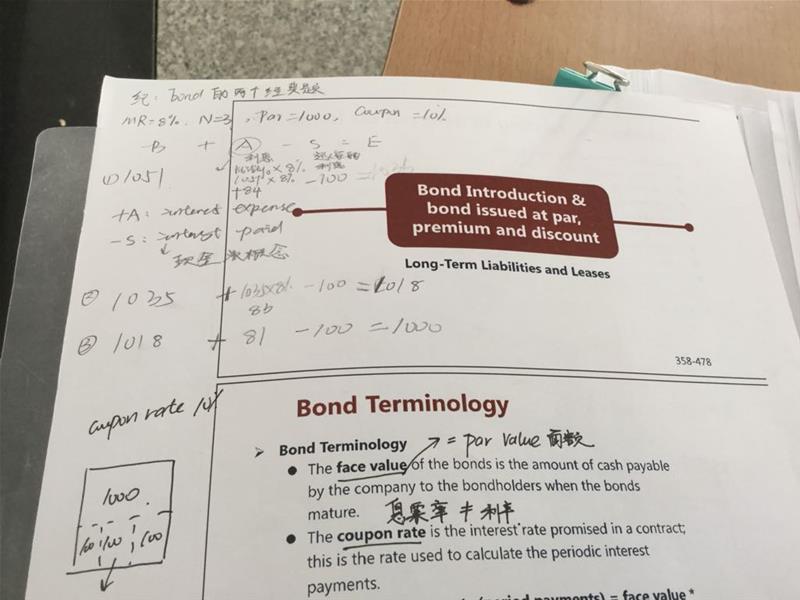 纪: bond 的两个经典题
MR=8%. N=3, Par=1000, Coupon=10%
B + A - S = E
利息
① 1051 1051×8% -100
+84
+A: interest expense
-S: interest paid
↓
现金流概念
Bond Introduction &
bond issued at par,
premium and discount
Long-Term Liabilities and Leases
② 1035 +1035×8% -100 =1018
83
③ 1018 + 81 -100 =1000
358-478
coupon rate 10%
Bond Terminology
➢ Bond Terminology → = par value 面数
● The face value of the bonds is the amount of cash payable
by the company to the bondholders when the bonds
mature. 息票率 ≠ 利率
● The coupon rate is the interest rate promised in a contract;
this is the rate used to calculate the periodic interest
payments.
1000
100 100 100
payments) = face value *